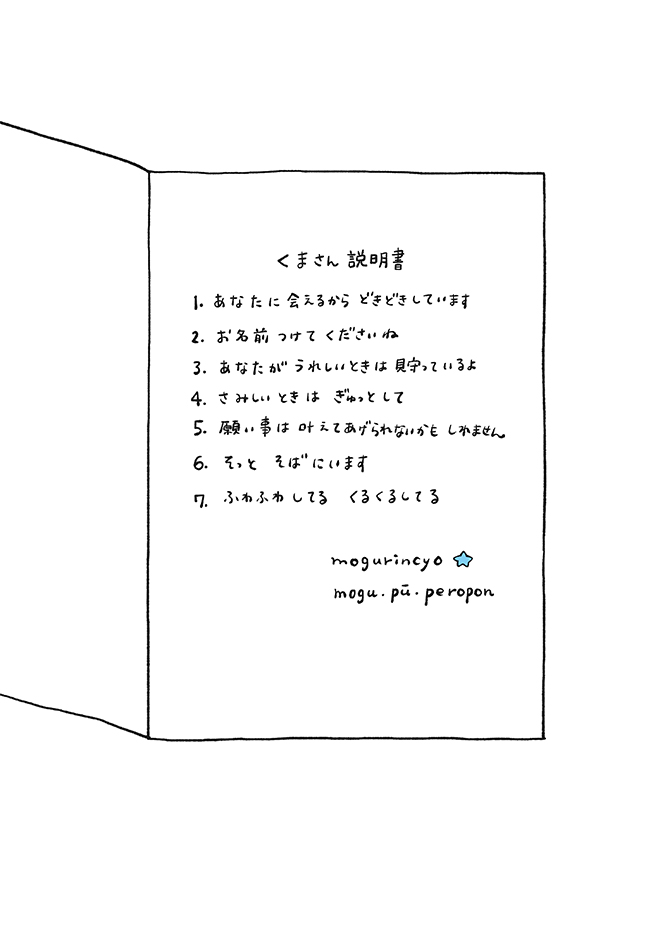 くまさん 説明書
1. あなたに 会えるから どきどきしています
2. お名前 つけて くださいね
3. あなたが うれしいときは 見守っているよ
4. さみしい ときは ぎゅっとして
5. 願い事は 叶えてあげられないかも しれません。
6. そっと そばにいます
7. ふわふわしてる くるくるしてる
mogurincyo
mogu・pū・peropon